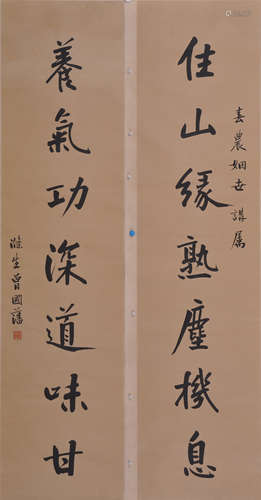 春農姻世講屬
住山緣熟塵機息
養氣功深道味甘
滌生曾國藩